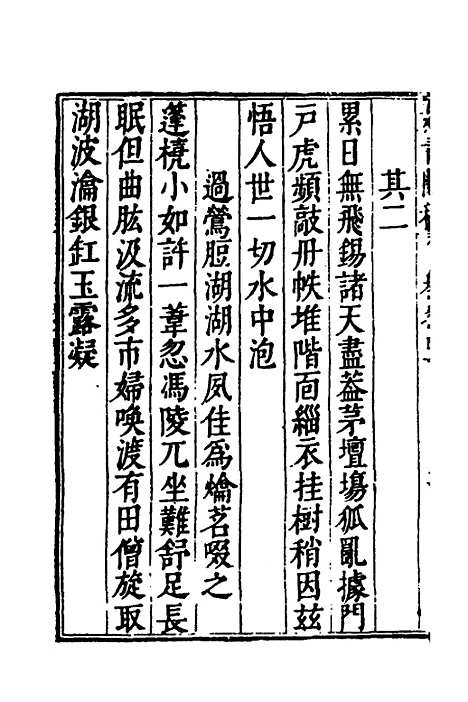 其二
累日無飛錫諸天盡葢茅壇塲狐亂據門
戸虎頻敲冊帙堆階面緇衣挂樹稍因兹
悟人世一切水中泡
過鶯脰湖湖水夙佳爲爚茗啜之
蓬橈小如許一葦忽馮陵兀坐難舒足長
眠但曲肱汲流多市婦喚渡有田僧旋取
湖波瀹銀缸玉露凝